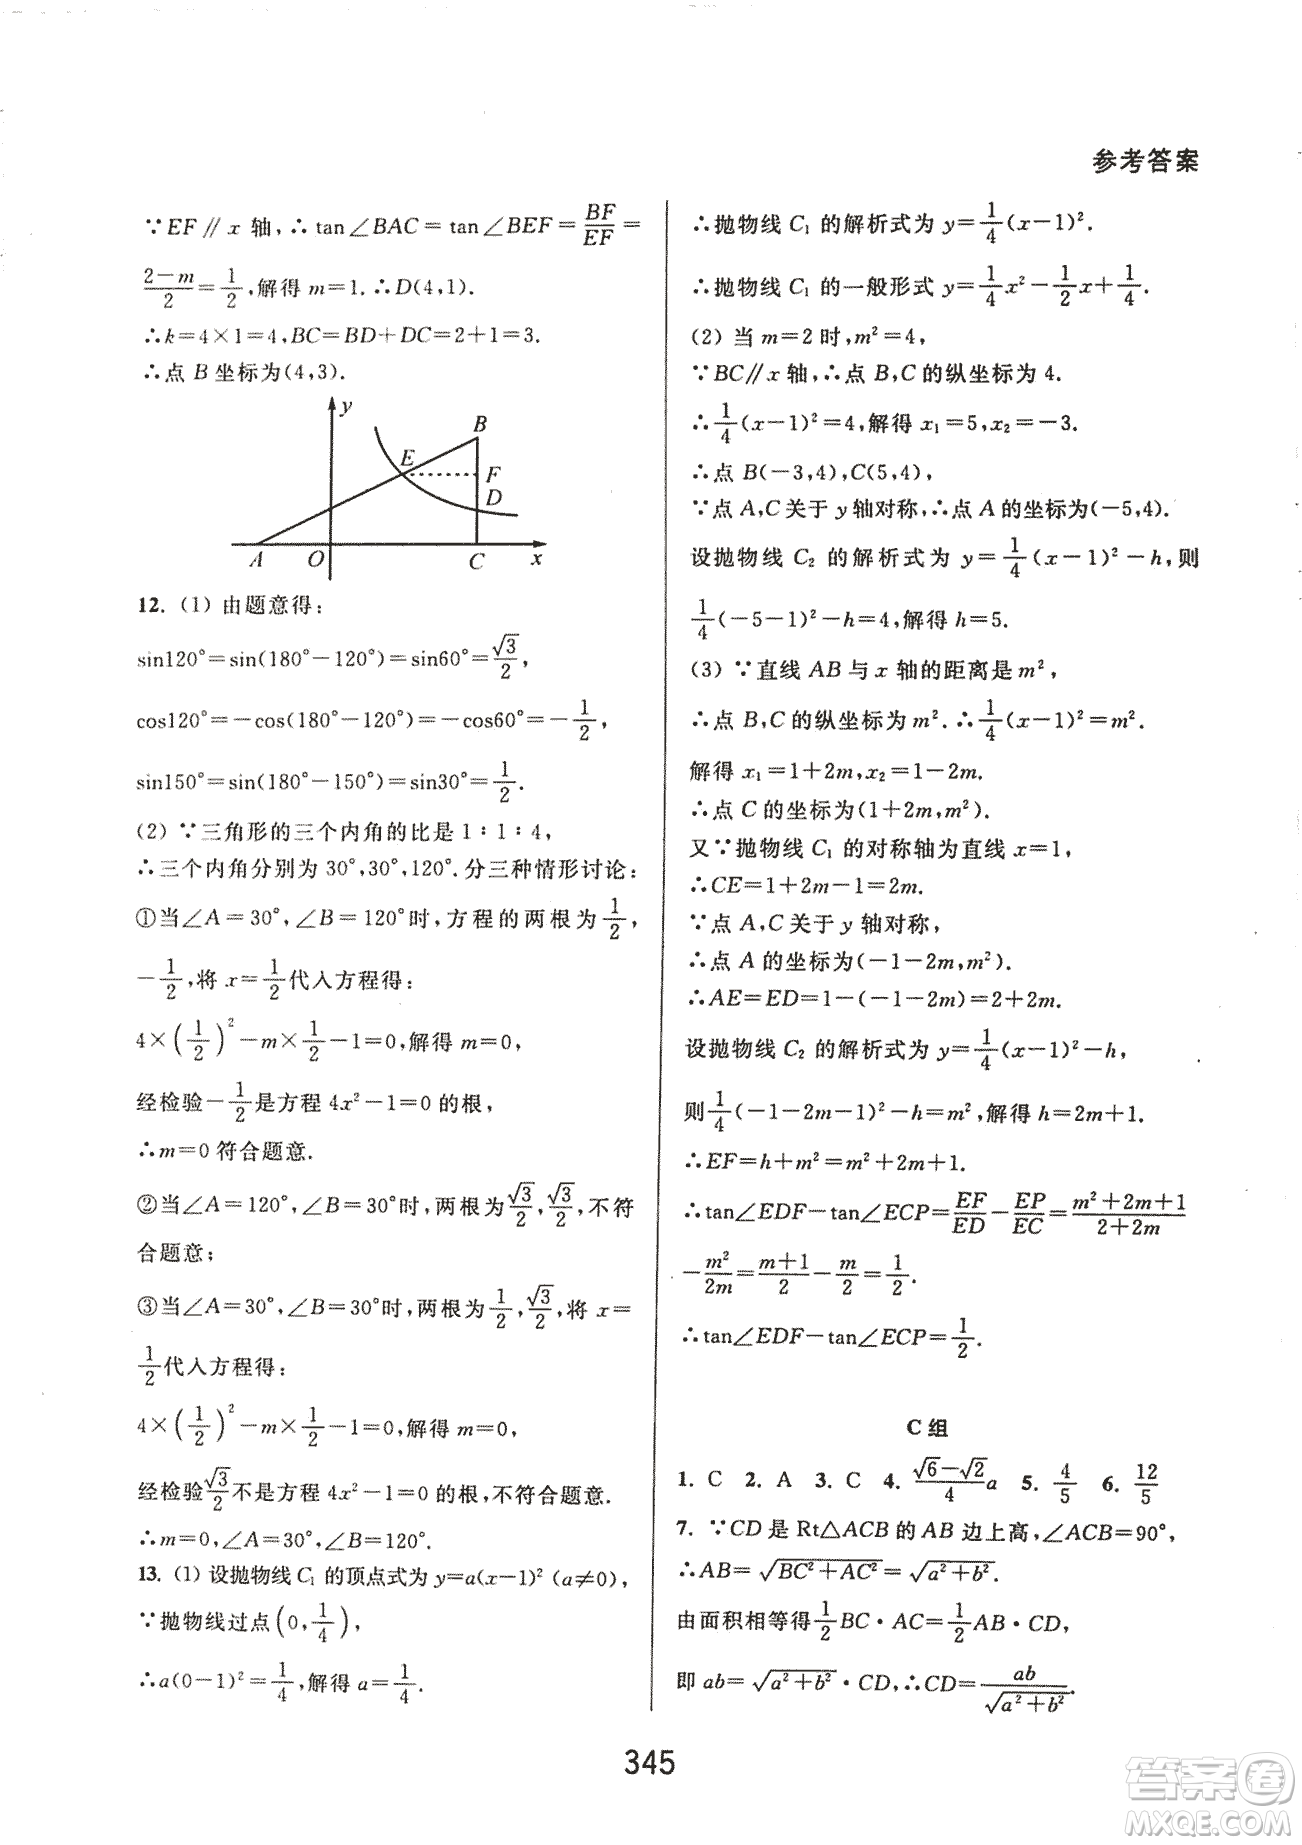 参考答案
∵EF∥x 轴,∴tan∠BAC=tan∠BEF=BF/EF=
(2-m)/2=1/2,解得 m=1.∴D(4,1).
∴k=4×1=4,BC=BD+DC=2+1=3.
∴点 B 坐标为(4,3).
y
B
E
F
D
A
O
C
x
12. (1) 由题意得:
sin120°=sin(180°-120°)=sin60°=√3/2,
cos120°=-cos(180°-120°)=-cos60°=-1/2,
sin150°=sin(180°-150°)=sin30°=1/2.
(2) ∵三角形的三个内角的比是 1:1:4,
∴三个内角分别为 30°,30°,120°.分三种情形讨论:
①当∠A=30°,∠B=120°时,方程的两根为1/2,
-1/2,将 x=1/2代入方程得:
4×(1/2)²-m×1/2-1=0,解得 m=0,
经检验-1/2是方程 4x²-1=0 的根,
∴m=0 符合题意.
②当∠A=120°,∠B=30°时,两根为√3/2,√3/2,不符
合题意;
③当∠A=30°,∠B=30°时,两根为1/2,√3/2,将 x=
1/2代入方程得:
4×(1/2)²-m×1/2-1=0,解得 m=0,
经检验√3/2不是方程 4x²-1=0 的根,不符合题意.
∴m=0,∠A=30°,∠B=120°.
13. (1) 设抛物线 C₁ 的顶点式为 y=a(x-1)² (a≠0),
∵抛物线过点(0,1/4),
∴a(0-1)²=1/4,解得 a=1/4.
∴抛物线 C₁ 的解析式为 y=1/4(x-1)².
∴抛物线 C₁ 的一般形式 y=1/4x²-1/2x+1/4.
(2) 当 m=2 时,m²=4,
∵BC∥x 轴,∴点 B,C 的纵坐标为 4.
∴1/4(x-1)²=4,解得 x₁=5,x₂=-3.
∴点 B(-3,4),C(5,4),
∵点 A,C 关于 y 轴对称,∴点 A 的坐标为(-5,4).
设抛物线 C₂ 的解析式为 y=1/4(x-1)²-h,则
1/4(-5-1)²-h=4,解得 h=5.
(3) ∵直线 AB 与 x 轴的距离是 m²,
∴点 B,C 的纵坐标为 m².∴1/4(x-1)²=m².
解得 x₁=1+2m,x₂=1-2m.
∴点 C 的坐标为(1+2m,m²).
又∵抛物线 C₁ 的对称轴为直线 x=1,
∴CE=1+2m-1=2m.
∵点 A,C 关于 y 轴对称,
∴点 A 的坐标为(-1-2m,m²).
∴AE=ED=1-(-1-2m)=2+2m.
设抛物线 C₂ 的解析式为 y=1/4(x-1)²-h,
则1/4(-1-2m-1)²-h=m²,解得 h=2m+1.
∴EF=h+m²=m²+2m+1.
∴tan∠EDF-tan∠ECP=EF/ED-EP/EC=(m²+2m+1)/(2+2m)
-m²/2m=(m+1)/2-m/2=1/2.
∴tan∠EDF-tan∠ECP=1/2.
C 组
1. C 2. A 3. C 4. (√6-√2)/4 a 5. 4/5 6. 12/5
7. ∵CD 是 Rt△ACB 的 AB 边上高,∠ACB=90°,
∴AB=√(BC²+AC²)=√(a²+b²).
由面积相等得1/2BC·AC=1/2AB·CD,
即 ab=√(a²+b²)·CD,∴CD=ab/√(a²+b²).
345
答案卷
MXQE.COM